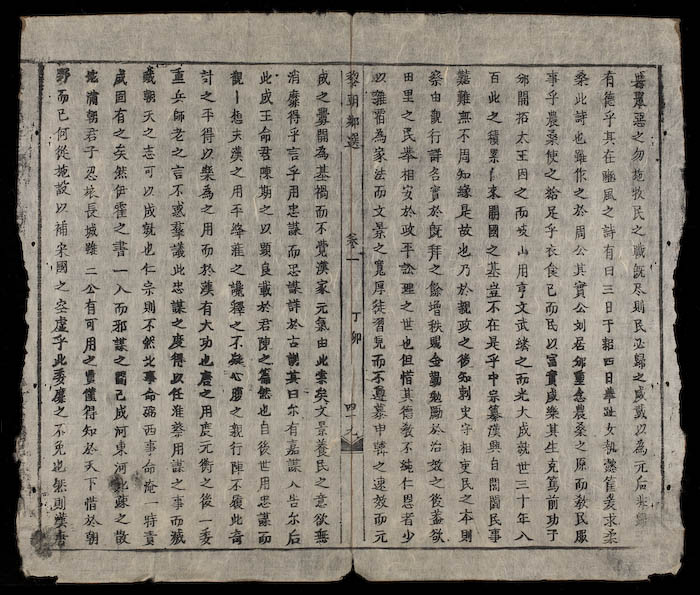 所惡之勿施牧民之職既尽則民必歸之咸戴以為元后矣雖
有德乎其在豳風之詩有曰三日于耜四日舉趾女執懿筐爰求柔
桑此詩也雖作之於周公其實公刘居邠重念農桑之原而教民服
事乎農桑使之給足乎衣食已而民以富實咸樂其生克篤前功于
邠開拓太王因之而岐山用亨文武緒之而光大成就世三十年八
百此之積累以來開國之基豈不在是乎中宗纂漢興自閭閻民事
艱難無不周知緣是故也乃於親政之後知刺史守相吏民之本則
察由觀行譯名實於既拜之餘增秩賜金勸勉勵於治效之後蓋欲
田里之民举相安於政平訟理之世也但惜其德教不純仁恩者少
以雜霸為家法而文景之寬厚徒習見而不遵慕申韓之速效而元
黎朝鄉選 卷一 丁卯 四十九
成之釁開為基禍而不覺漢家元氣由此索矣文景養民之意欲無
消靡得乎言乎用忠謀而忠謀詳於古訓其曰尔有嘉謀入告尔后
此成王命君陳期之以顕良載於君陳之篇然也自後世用忠謀而
觀一想夫漢之用平絳莊之讒釋之不疑心膺之親行陣不履此奇
計之平得以樂為之用而於漢有大功也唐之用度元衡之後一委
重兵師老之言不惑群議此忠謀之度得以任淮蔡用謀之事而殱
賊朝天之志可以成就也仁宗則不然北事命弼西事命淹一時責
成固有之矣然伊霍之書一入而邪謀之間已成河東河北疎之散
地蒲朝君子忍壊長城雖二公有可用之實僅得知於天下惜於朝
野而已何從施設以補宋國之空虚乎此委靡之不免也然則漢唐